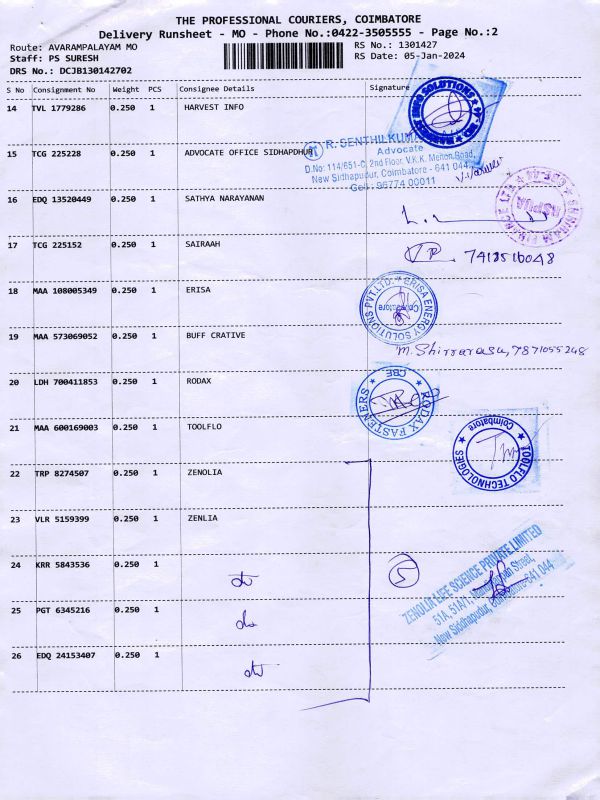 THE PROFESSIONAL COURIERS, COIMBATORE
Delivery Runsheet - MO - Phone No.:0422-3505555 - Page No.:2
Route: AVARAMPALAYAM MO
RS No.: 1301427
Staff: PS SURESH
RS Date: 05-Jan-2024
DRS No.: DCJB130142702
S No Consignment No Weight PCS Consignee Details Signature
14 TVL 1779286 0.250 1 HARVEST INFO
HARVEST INFO SOLUTIONS
15 TCG 225228 0.250 1 ADVOCATE OFFICE SIDHAPDHUR
R. SENTHILKUMAR
Advocate
D.No: 114/651-C, 2nd Floor, V.K.K. Menon Road,
New Sidhapudur, Coimbatore - 641 044
Cell: 96774 00011
16 EDQ 13520449 0.250 1 SATHYA NARAYANAN
17 TCG 225152 0.250 1 SAIRAAH
7418516048
18 MAA 108005349 0.250 1 ERISA
ERISA ENERGY SOLUTIONS PVT.LTD.
Coimbatore
19 MAA 573069052 0.250 1 BUFF CRATIVE
7871055248
20 LDH 700411853 0.250 1 RODAX
RODAX FASTENERS
CBE
21 MAA 600169003 0.250 1 TOOLFLO
TOOLFLO TECHNOLOGIES
Coimbatore
22 TRP 8274507 0.250 1 ZENOLIA
23 VLR 5159399 0.250 1 ZENLIA
24 KRR 5843536 0.250 1 do
5
ZENOLIA LIFE SCIENCE PRIVATE LIMITED
51A, 51A/1,
New Siddhapudur, Coimbatore-641 044
25 PGT 6345216 0.250 1 do
26 EDQ 24153407 0.250 1 do